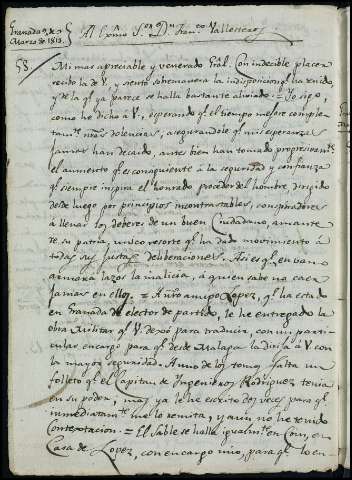 Granada 9 de
Marzo de 1813.
Al Exmo Sor Dn Franco Vallesteros
58
Mi mas apreciable y venerado Gral. Con indecible placer
recibo la de V, y siento sobremanera la indisposicion q. ha tenido,
y de la q. ya parece se halla bastante aliviado = Yo sigo,
como he dicho à V, esperando q. el tiempo mejore complen
tamte nras dolencias, asegurandole q. mis esperanzas
jamas han decaido, antes bien han tomado progresivamte
el aumento q. es consiguiente à la seguridad y confianza
q. siempre inspira el honrado proceder del hombre, dirigido
desde luego por principios incontrastables, conspiradores
à llenar los deberes de un buen Ciudadano, amante
de su patria, unico resorte q. ha dado movimiento à
todas sus justas deliberaciones. Asi es q. en vano
armarà lazos la malicia, à quien sabe no caer
jamas en ellos. = A nro amigo Lopez, q. ha estado
en Granada de elector de partido, le he entregado la
obra Militar q. V. dexò para traducir, con un parti
cular encargo para q. desde Malaga la dirija à V con
la mayor seguridad. A uno de los tomos falta un
folleto q. el Capitan de Ingenieros Rodriguez tenia
en su poder; mas ya le he escrito dos veces para q.
inmediatamte me lo remita, y aun no he tenido
contextacion. = El Sable se halla igualmte en Coin, en
Casa de Lopez, con encargo mio, para q. lo en